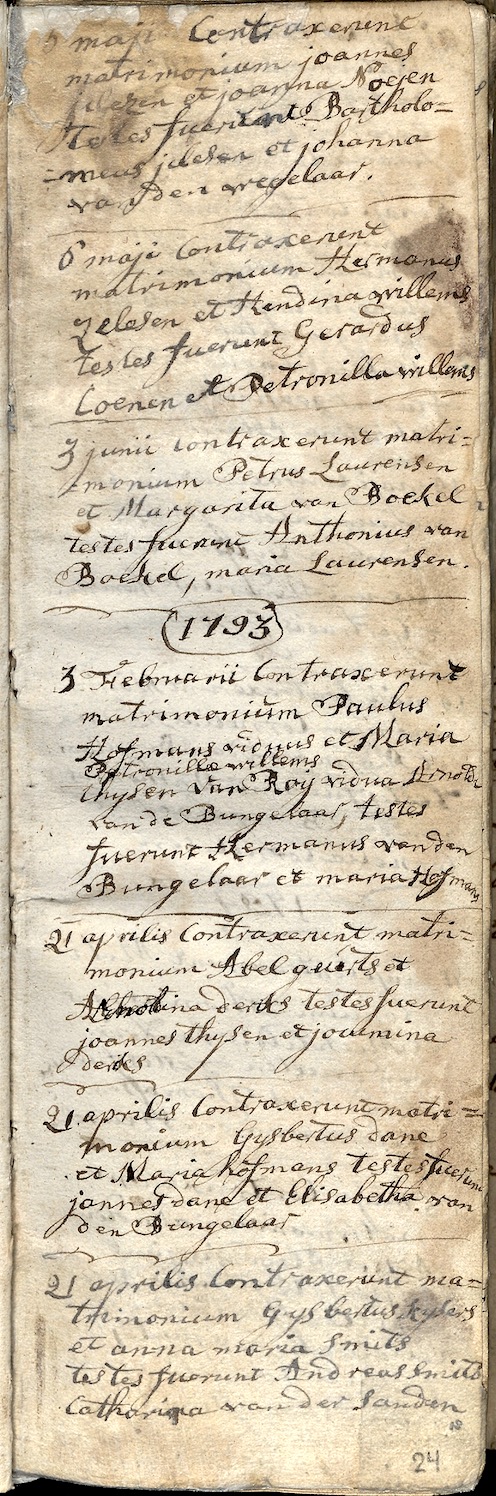 5 maji Contraxerunt
matrimonium joannes
et joanna Noejen
Testes fuerunt Bartholo=
=meus jilesen et johanna
van den wegelaar.
6 maji Contraxerunt
matrimonium Hermanus
Jelesen et Hendina willems
testes fuerunt Gerardus
Coenen et Petronilla willems
3 junii contraxerunt matri=
=monium Petrus Laurensen
et Margarita van Boekel
testes fuerunt Anthonius van
Boekel, maria Laurensen.
1793
3 Februarii Contraxerunt
matrimonium Paulus
Hofmans viduus et Maria
Petronillæ willems
thysen van Raij vidua Arnoldi
van de Bungelaar, testes
fuerunt Hermanus van den
Bungelaar et maria Hofmans
21 aprilis Contraxerunt matri=
monium Abel geurts et
derks testes fuerunt
joannes thysen et joumina
derks
21 aprilis Contraxerunt matri=
monium Gysbertus dane
et Maria hofmans testes fuerunt
jannes dane et Elisabetha van
den Bungelaar
21 aprilis Contraxerunt ma=
trimonium Gysbertus kysers
et anna maria Smits
testes fuerunt Andreas Smits
Catharina van der Sanden
24